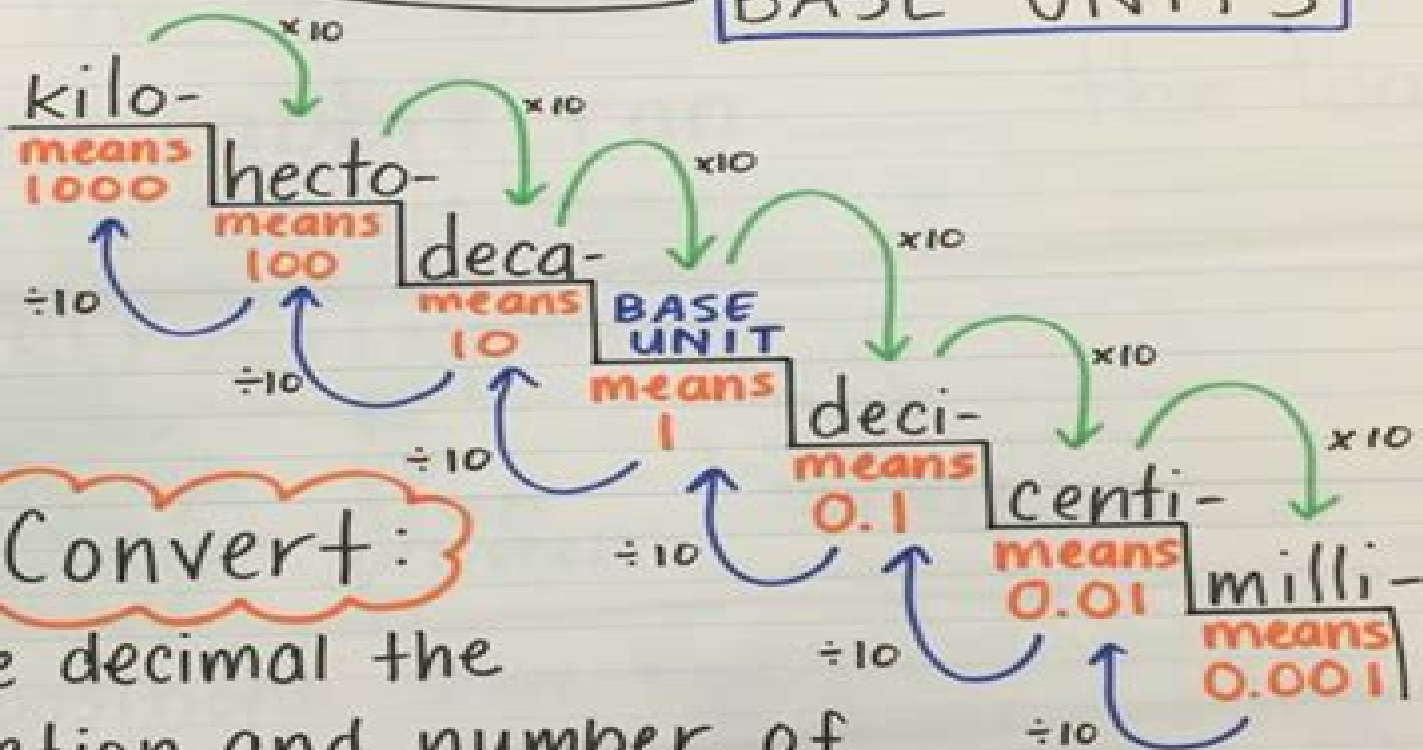 BASE UNITS
×10
kilo-
means
1000
×10
hecto-
means
100
×10
deca-
means
10
×10
BASE
UNIT
means
1
×10
deci-
means
0.1
×10
centi-
means
0.01
milli-
means
0.001
÷10
÷10
÷10
÷10
÷10
÷10
Convert:
decimal the
and number of